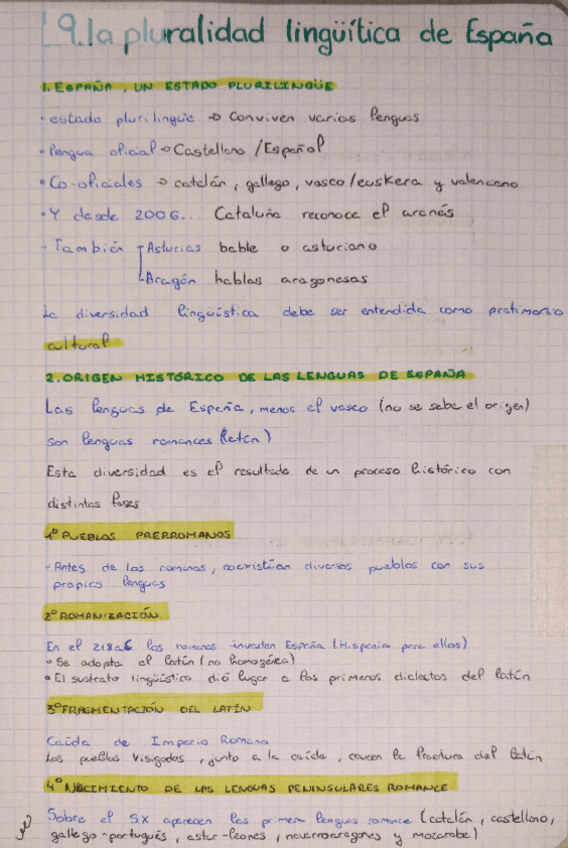 9. la pluralidad lingüítica de España
1. ESPAÑA, UN ESTADO PLURILINGÜE
· estado plurilingüe → Conviven varias lenguas
· lengua oficial → Castellano / Español
· Co-oficiales → catalán, gallego, vasco/euskera y valenciano
· Y desde 2006... Cataluña reconoce el aranés
· También Asturias bable o asturiano
Aragón hablas aragonesas
La diversidad lingüística debe ser entendida como
cultural
2. ORIGEN HISTÓRICO DE LAS LENGUAS DE ESPAÑA
Las lenguas de España, menos el vasco (no se sabe el origen)
son lenguas romances (latín)
Esta diversidad es el resultado de un proceso histórico con
distintas fases
1º PUEBLOS PRERROMANOS
- Antes de los romanos, coexistían diversos pueblos con sus
propias lenguas
2º ROMANIZACIÓN
En el 218a.C los romanos invaden España (Hispania para ellos)
· Se adopta el latín (no homogénea)
· El sustrato lingüístico dió lugar a los primeros dialectos del latín
3º FRAGMENTACIÓN DEL LATÍN
Caída de Imperio Romano
Los pueblos visigodos, junto a la caída, causan la fractura del latín
4º NACIMIENTO DE LAS LENGUAS PENINSULARES ROMANCE
Sobre el SX aparecen las primera lenguas romance (catalán, castellano,
gallego-portugués, astur-leones, navarroaragones y mozarabe)